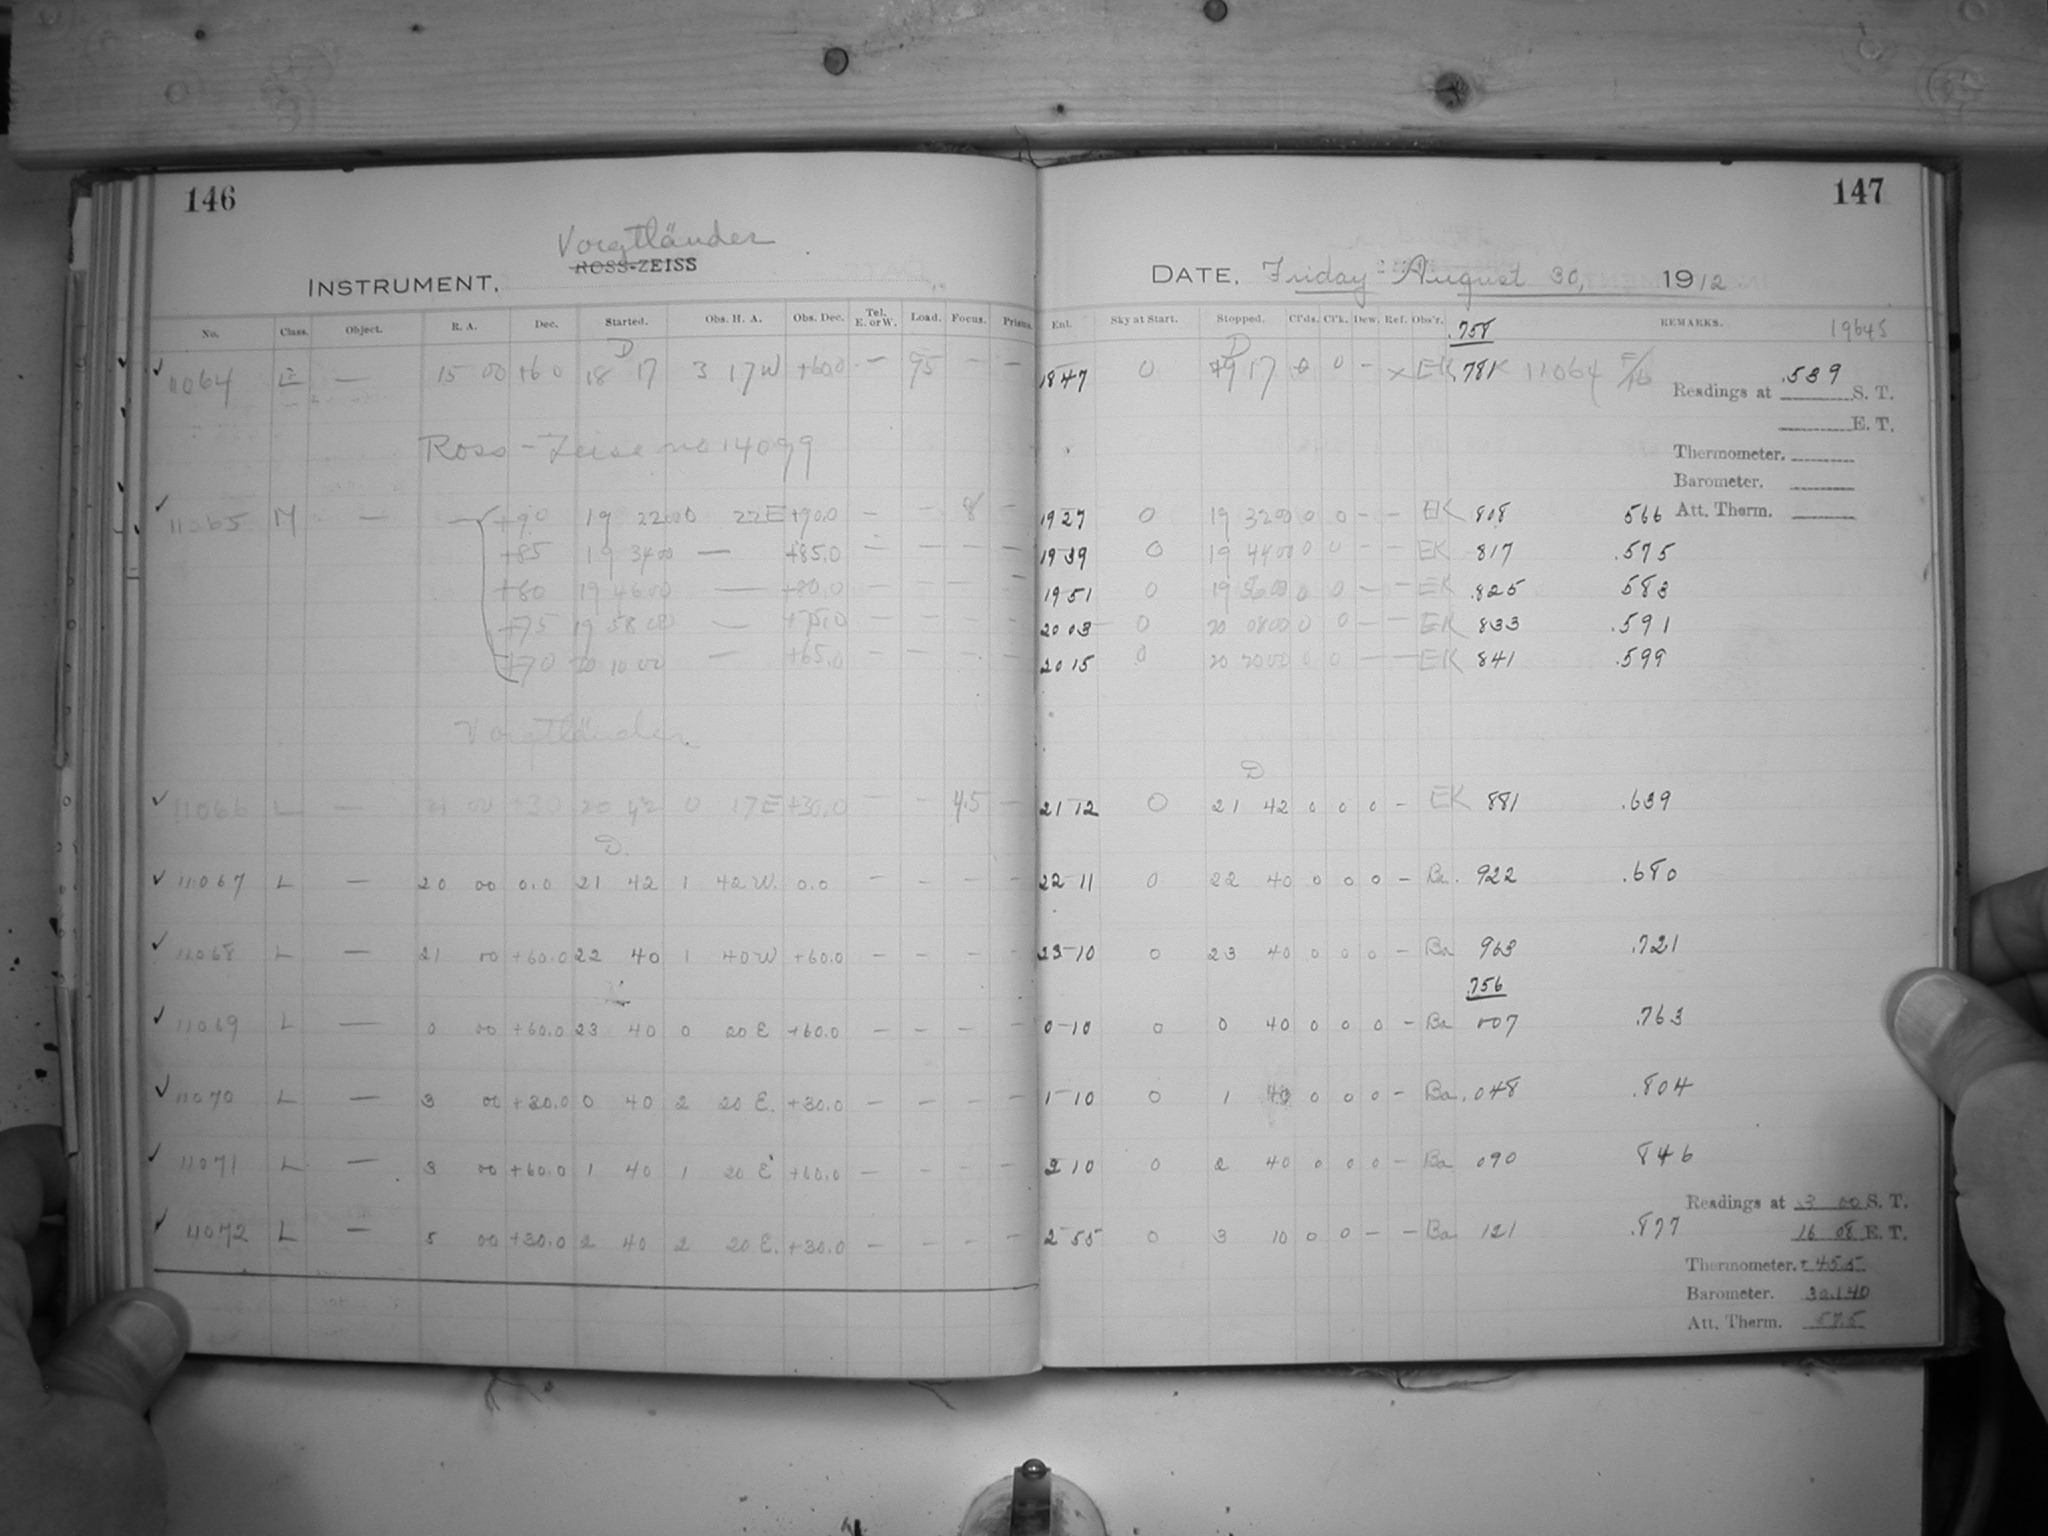 146
Voigtländer
ROSS-ZEISS
INSTRUMENT,
No. Class. Object. R. A. Dec. Started. Obs. H. A. Obs. Dec. Tel. E. or W. Load. Focus. Prisms.
D
11064 — 15 00 +60 18 17 3 17 W +60.0 — 95 — —
Ross-Zeiss no 14099
11065 M — — +90 19 22 00 0 22 E +90.0 — — 8 —
+85 19 34 00 — +85.0 — — — —
+80 19 46 00 — +80.0 — — — —
+75 19 58 00 — +75.0 — — — —
+70 20 10 00 — +65.0 — — — —
Voigtländer
11066 L — 21 00 +30 20 42 0 17 E +30.0 — — 4.5 —
D.
11067 L — 20 00 0.0 21 42 1 42 W. 0.0 — — — —
11068 L — 21 00 +60.0 22 40 1 40 W +60.0 — — — —
11069 L — 0 00 +60.0 23 40 0 20 E +60.0 — — — —
11070 L — 3 00 +30.0 0 40 2 20 E. +30.0 — — — —
11071 L — 3 00 +60.0 1 40 1 20 E +60.0 — — — —
11072 L — 5 00 +30.0 2 40 2 20 E. +30.0 — — — —
147
DATE, Friday August 30, 1912
Ent. Sky at Start. Stopped. Cl'ds. Cl'k. Dew. Ref. Obs'r. .758 REMARKS. 19645
D
18 47 0 19 17 0 0 — × EK 781 11064 .539
Readings at S. T.
E. T.
Thermometer.
Barometer.
Att. Therm.
19 27 0 19 32 00 0 0 — — EK 808 566
19 39 0 19 44 00 0 0 — — EK 817 .575
19 51 0 19 56 00 0 0 — — EK .825 583
20 03 0 20 08 00 0 0 — — EK 833 .591
20 15 0 20 20 00 0 0 — — EK 841 .599
D
21 12 0 21 42 0 0 0 — EK 881 .639
22 11 0 22 40 0 0 0 — Ba. 922 .680
23 10 0 23 40 0 0 0 — Ba 963 .721
.756
0 10 0 0 40 0 0 0 — Ba 007 .763
1 10 0 1 40 0 0 0 — Ba. .048 .804
2 10 0 2 40 0 0 0 — Ba 090 846
2 55 0 3 10 0 0 — — Ba 121 .877
Readings at 3 00 S. T.
16 08 E. T.
Thermometer. +45.5
Barometer. 30.140
Att. Therm. 57.5